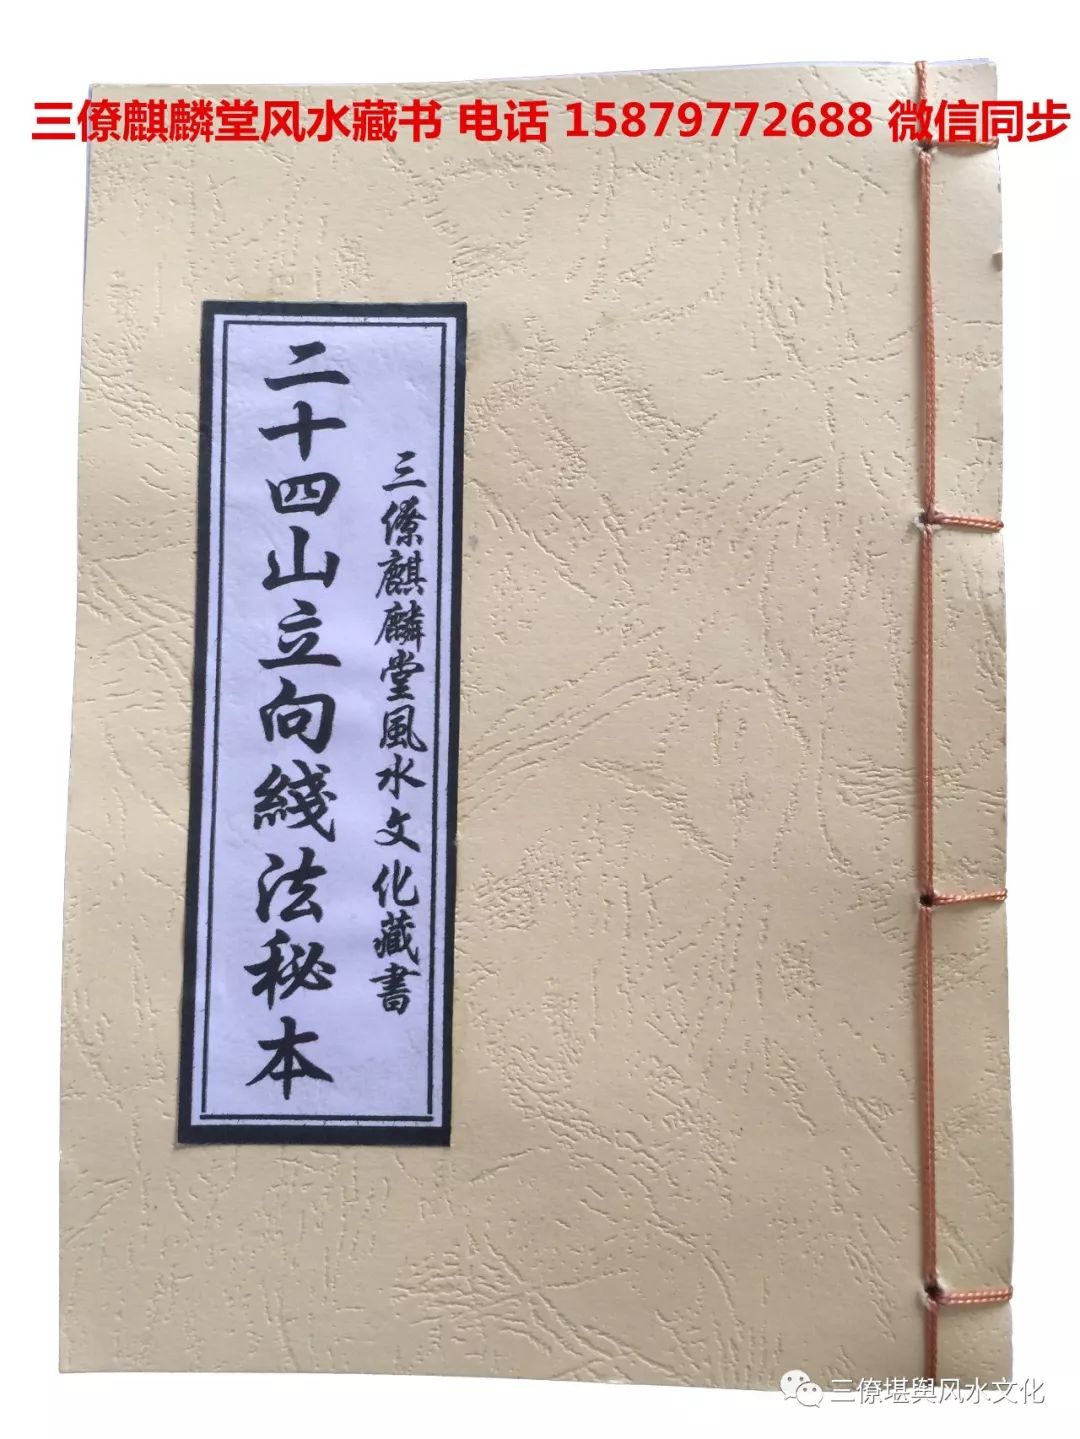 三僚麒麟堂风水藏书 电话 15879772688 微信同步
三僚麒麟堂風水文化藏書
二十四山立向綫法秘本
三僚堪舆风水文化